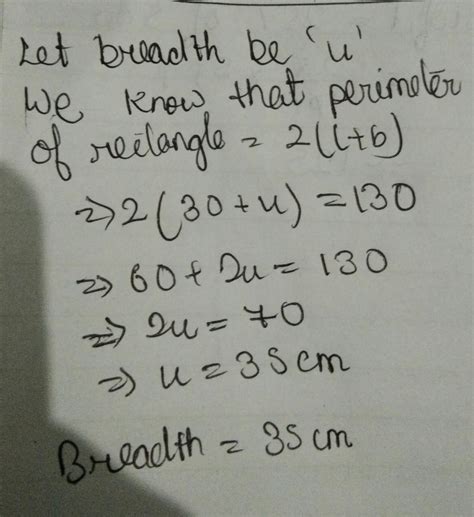 Let breadth be 'u'
We know that perimeter
of rectangle = 2(l+b)
⇒ 2(30+u) = 130
⇒ 60 + 2u = 130
⇒ 2u = 70
⇒ u = 35 cm
Breadth = 35 cm